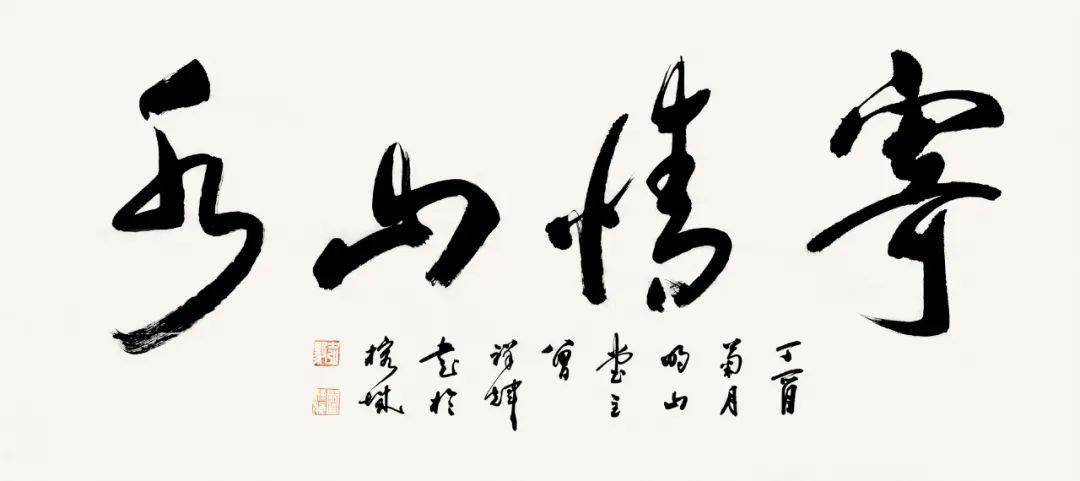 寄情山水
丁酉
菊月
山
堂主
曾
祥輝
書於
榕城